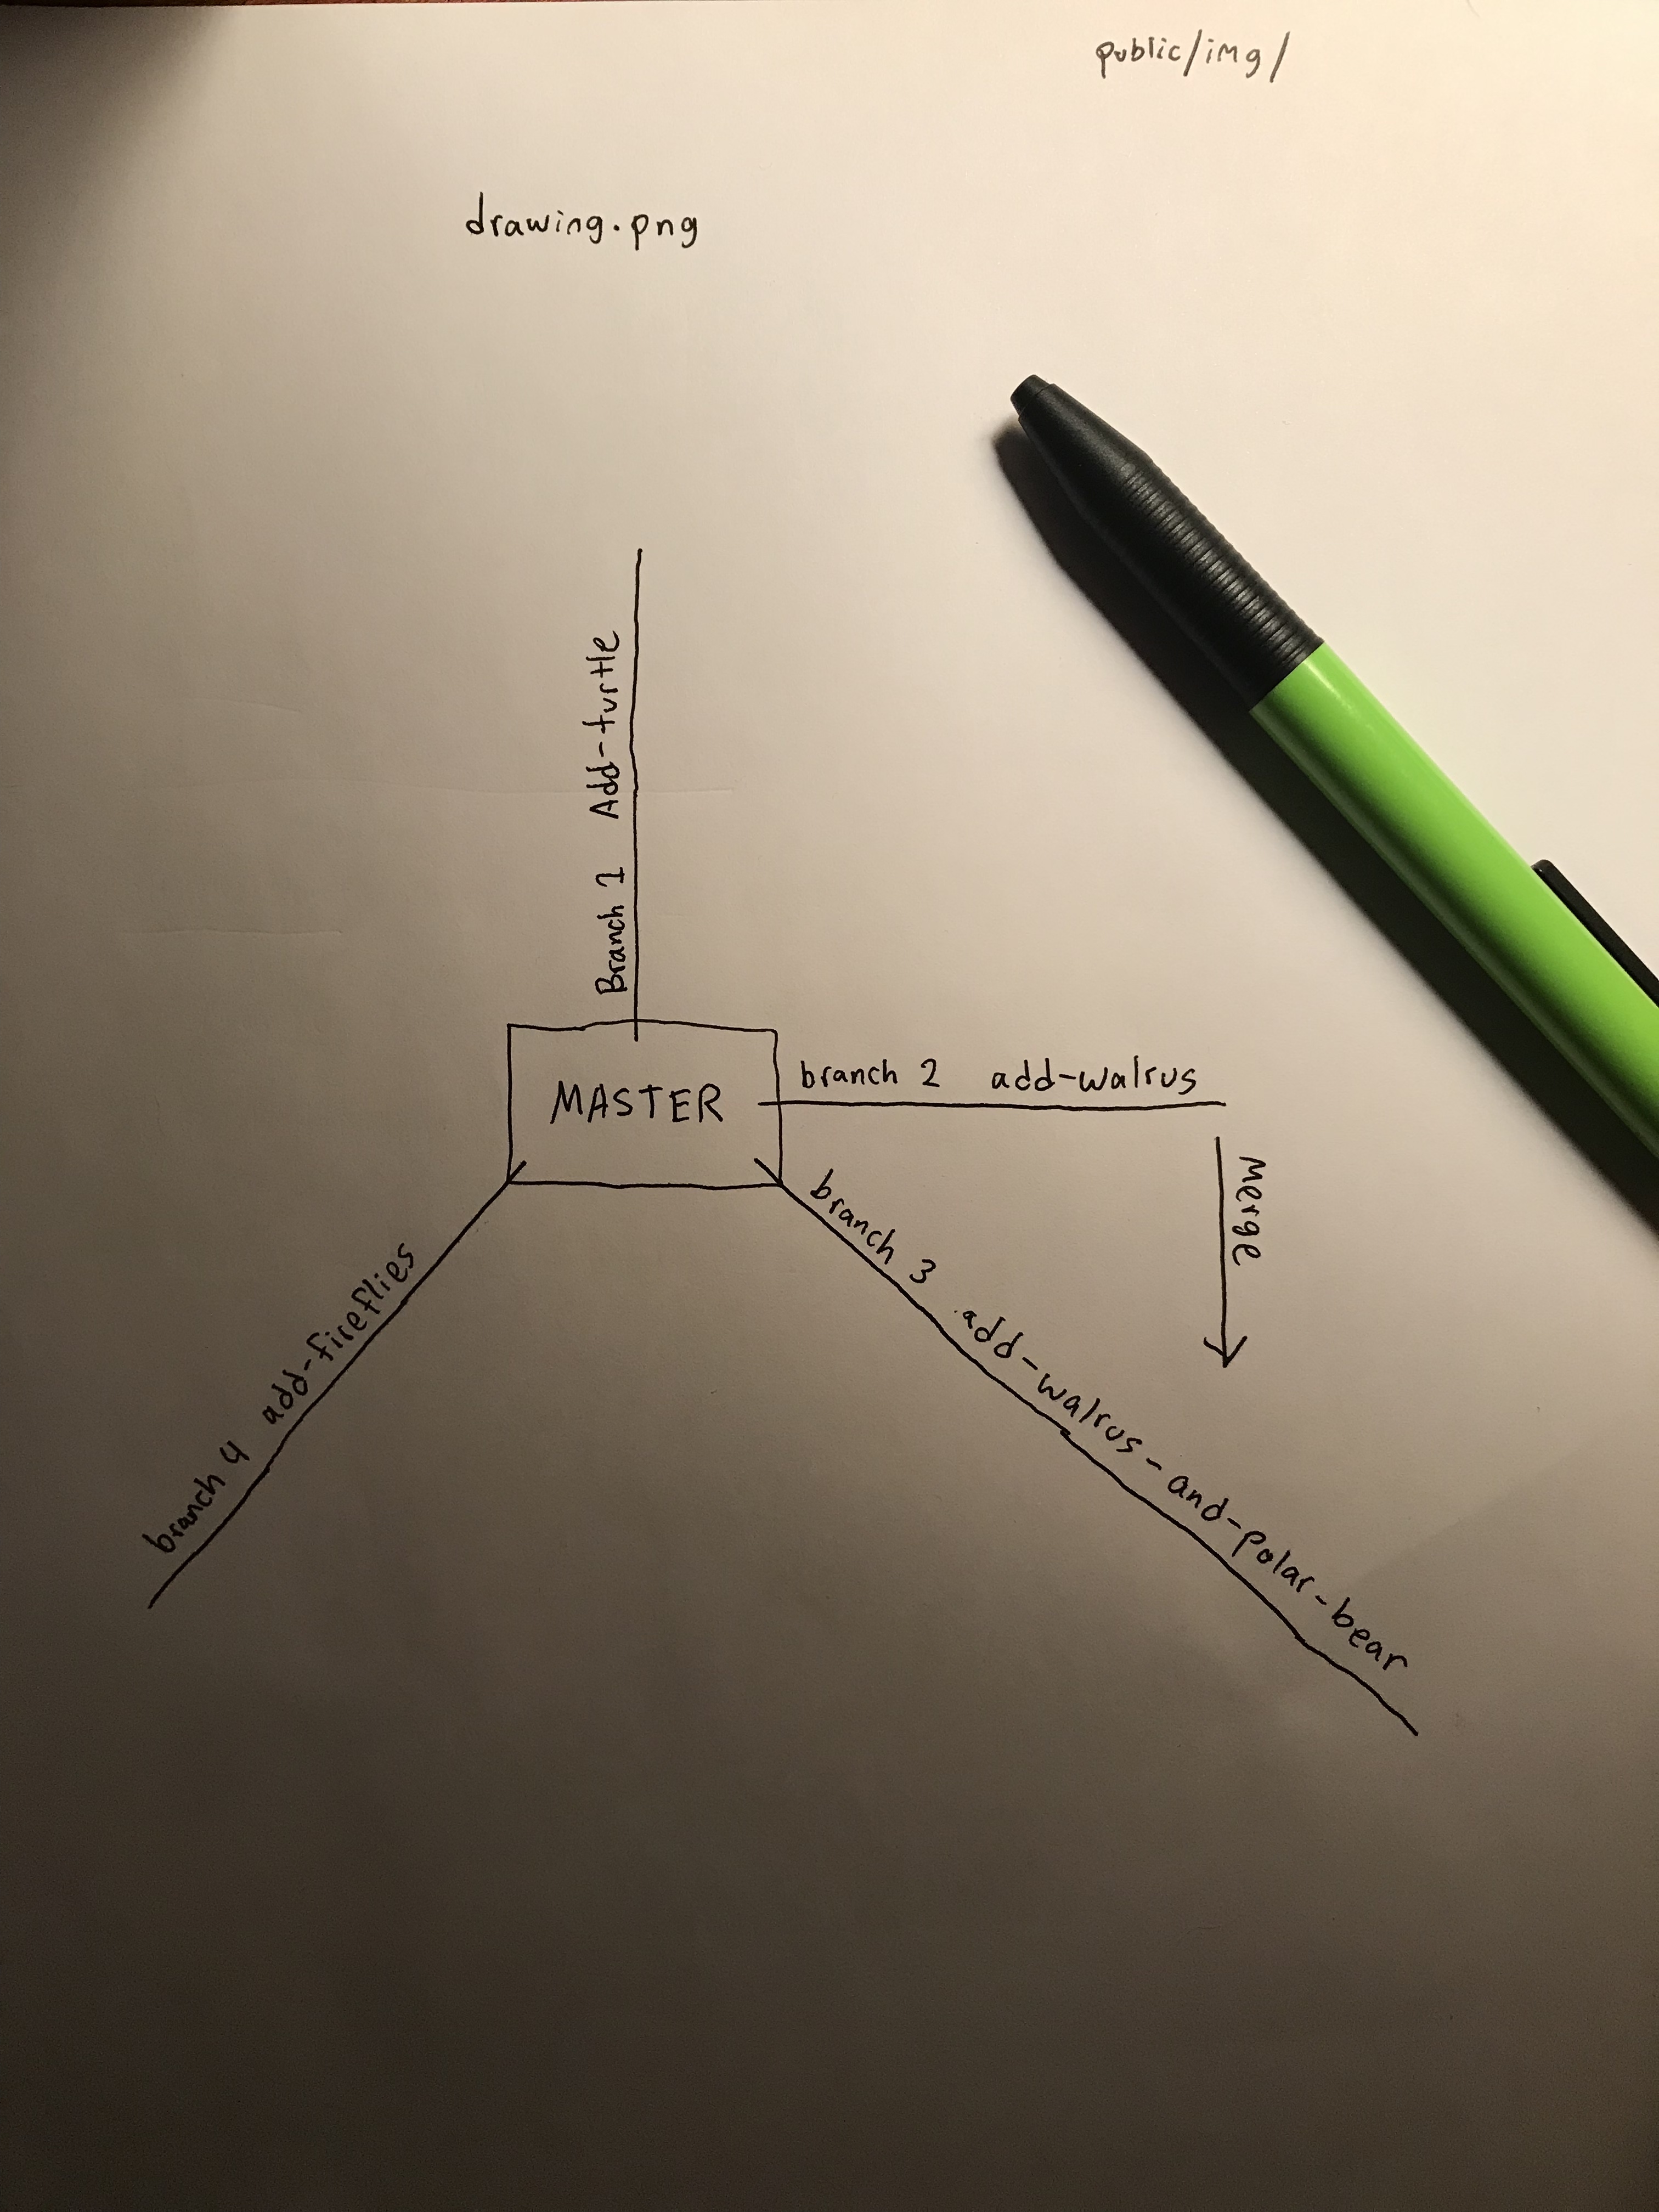 public/img/
drawing.png
Branch 1 Add-turtle
MASTER
branch 2 add-walrus
Merge
branch 3 add-walrus-and-polar-bear
branch 4 add-fireflies